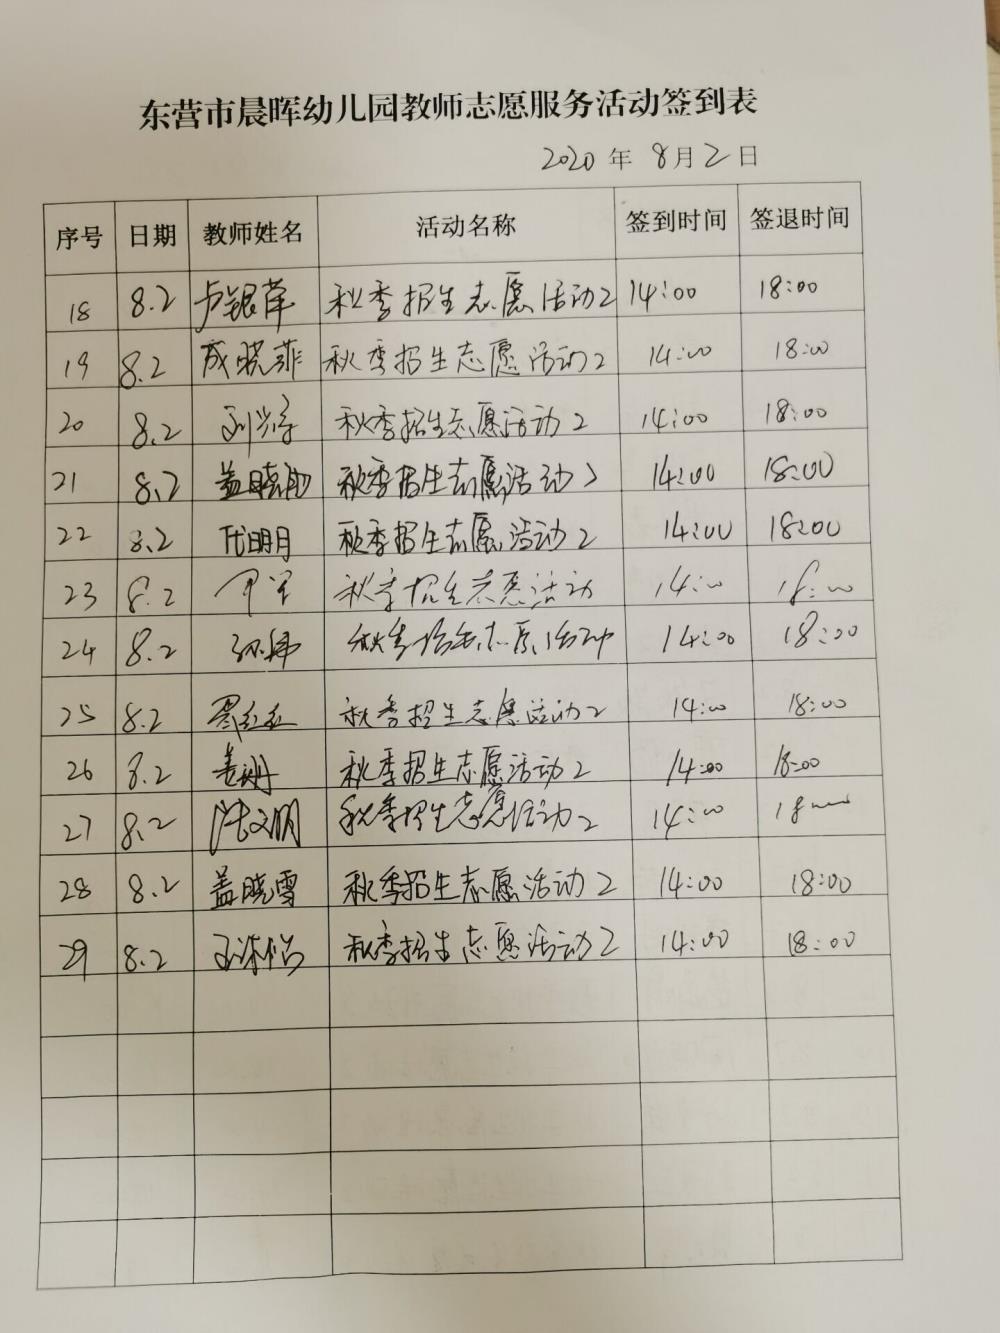 东营市晨晖幼儿园教师志愿服务活动签到表
2020 年 8月2日
序号 日期 教师姓名 活动名称 签到时间 签退时间
18 8.2 卢银萍 秋季招生志愿活动2 14:00 18:00
19 8.2 成晓菲 秋季招生志愿活动2 14:00 18:00
20 8.2 秋季招生志愿活动2 14:00 18:00
21 8.2 秋季招生志愿活动2 14:00 18:00
22 8.2 代明月 秋季招生志愿活动2 14:00 18:00
23 8.2 秋季招生志愿活动 14:00 18:00
24 8.2 秋季招生志愿活动 14:00 18:00
25 8.2 秋季招生志愿活动2 14:00 18:00
26 8.2 秋季招生志愿活动2 14:00 18:00
27 8.2 秋季招生志愿活动2 14:00 18:00
28 8.2 盖晓雪 秋季招生志愿活动2 14:00 18:00
29 8.2 秋季招生志愿活动2 14:00 18:00